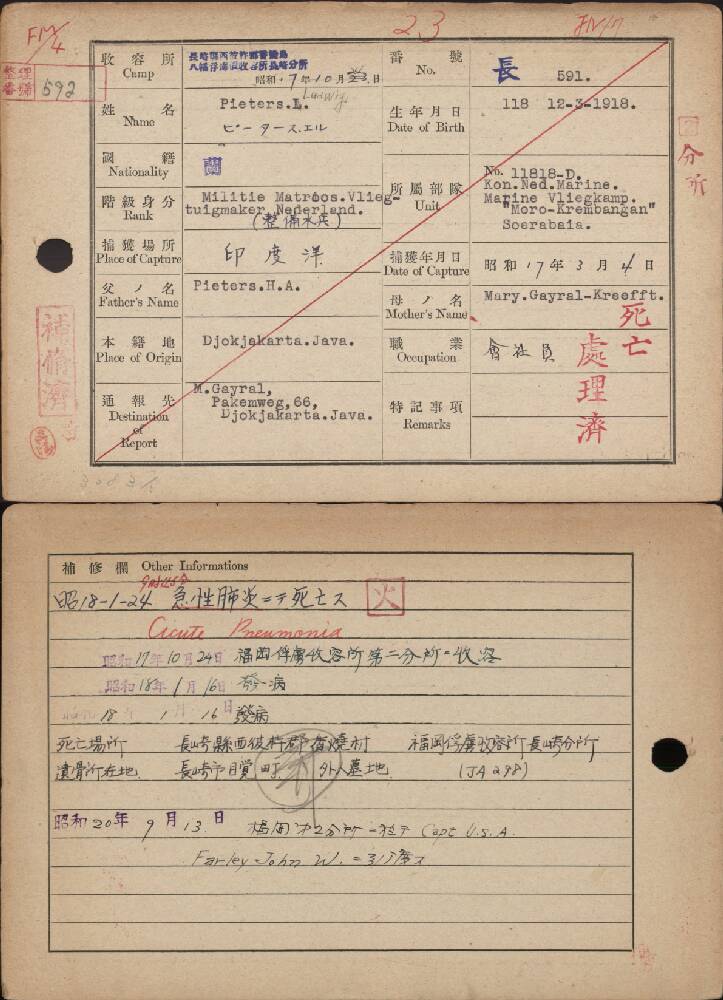 23
整理番號 592
收容所 Camp
昭和 17年10月 日
番號 No. 長 591.
姓名 Name
Pieters.L. Ludwig
ピータース.エル
生年月日 Date of Birth
118 12-3-1918.
國籍 Nationality
蘭
階級身分 Rank
Militie Matroos.Vlieg-
tuigmaker Nederland.
(整備水兵)
所屬部隊 Unit
No. 11818-D.
Kon.Ned.Marine.
Marine Vliegkamp.
"Moro-Krembangan"
Soerabaia.
分所
捕獲場所 Place of Capture
印度洋
捕獲年月日 Date of Capture
昭和 17年 3月 4日
父ノ名 Father's Name
Pieters.H.A.
母ノ名 Mother's Name
Mary.Gayral-Kreefft.
本籍地 Place of Origin
Djokjakarta.Java.
職業 Occupation
會社員
死亡
處理濟
通報先 Destination of Report
M.Gayral,
Pakemweg,66,
Djokjakarta.Java.
特記事項 Remarks
補修濟
補修欄 Other Informations
昭18-1-24 急性肺炎ニテ死亡ス
火
Acute Pneumonia
昭和17年10月24日 福岡俘虜收容所第二分所ニ收容
昭和18年1月16日 發病
18 1月16日 發病
死亡場所 長崎縣西彼杵郡香燒村 福岡俘虜收容所長崎分所
遺骨所在地 長崎市目覺町 外人墓地 (JA298)
昭和20年9月13日 福岡第2分所ニ於テ Capt U.S.A.
Farley John W. ニ引渡ス